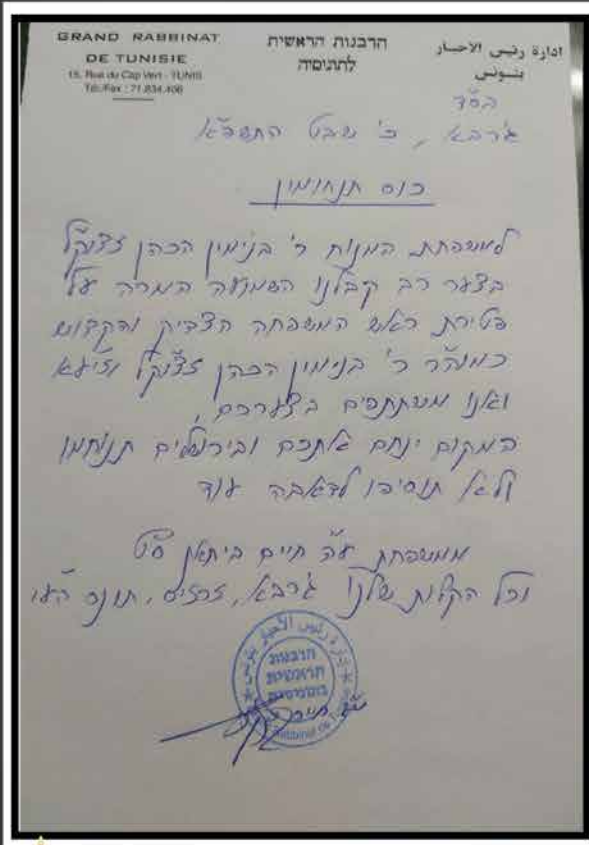 GRAND RABBINAT
DE TUNISIE
15, Rue du Cap Vert - TUNIS
Tél./Fax : 71.834.406
הרבנות הראשית
לתוניסיה
ادارة رئيس الاحبار
بتونس
בס"ד
ג'רבא, כ' שבט התשפ"א
כוס תנחומין
למשפחת המנוח ר' בנימין הכהן זצוק"ל
בצער רב קבלנו השמועה המרה על
פטירת ראש המשפחה הצדיק והקדוש
כמוהר"ר ר' בנימין הכהן זצוק"ל וזיע"א
ואנו משתתפים בצערכם,
המקום ינחם אתכם ובירושלים תנוחמו
ולא תוסיפו לדאבה עוד
ממשפחת ע"ה חיים ביתאן ס"ט
וכל הקלות שלנו ג'רבא, צרצים, תונס הע"י
הרבנות
הראשית
ع"ה חיים